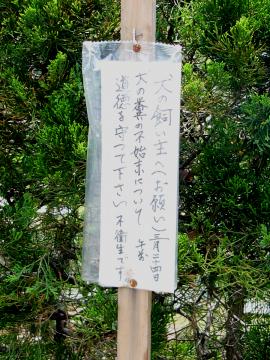 犬の飼い主へ(お願い)三月二十四日
犬の糞の不始末について 午前
道徳を守つて下さい 不衛生です